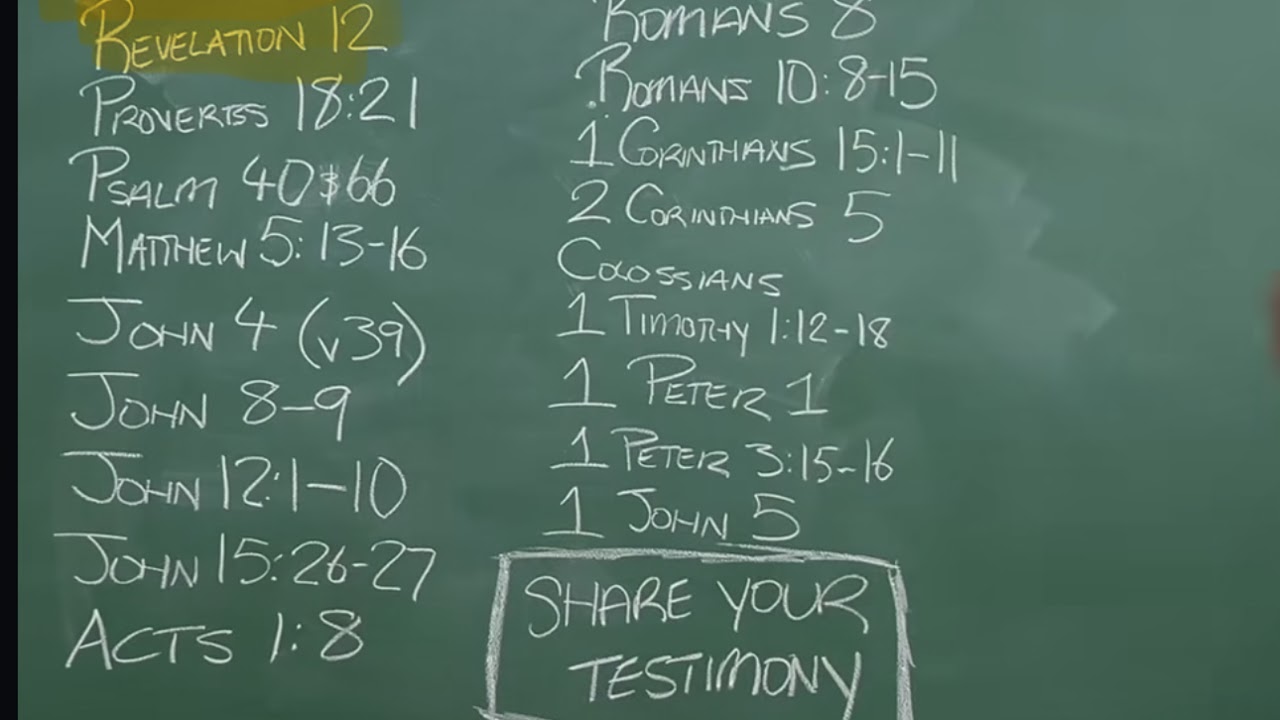 REVELATION 12
PROVERBS 18:21
PSALM 40 & 66
MATTHEW 5:13-16
JOHN 4 (v39)
JOHN 8-9
JOHN 12:1-10
JOHN 15:26-27
ACTS 1:8
ROMANS 8
ROMANS 10:8-15
1 CORINTHIANS 15:1-11
2 CORINTHIANS 5
COLOSSIANS
1 TIMOTHY 1:12-18
1 PETER 1
1 PETER 3:15-16
1 JOHN 5
SHARE YOUR
TESTIMONY